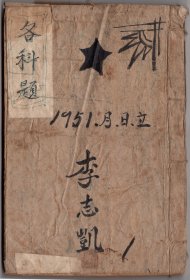 各科題
1951.月.日.立
李志凯
1